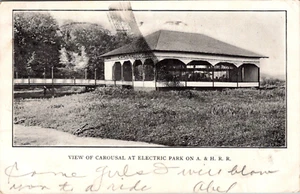 VIEW OF CAROUSAL AT ELECTRIC PARK ON A. & H. R. R.
Come girls I will blow
you to a ride Abel